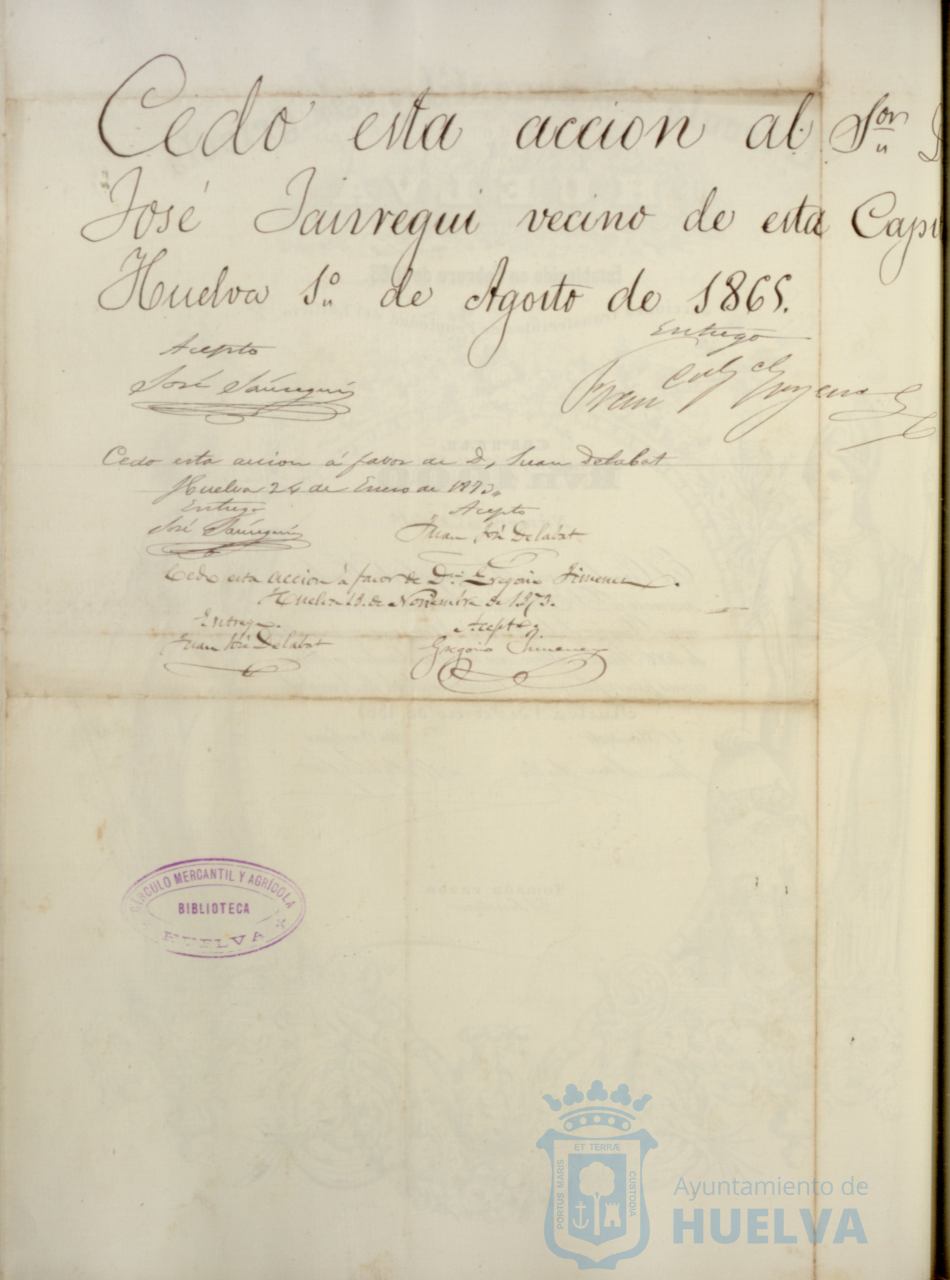 Cedo esta accion al Sor
José Jaurregui vecino de esta
Huelva 1º de Agosto de 1865.
Entrego
Acepto
José Jaúregui
Cedo esta accion á favor de D. Juan Delabat
Huelva 24 de Enero de 1873.
Entrego Acepto
José Jaúregui Juan José Delabat
Cedo esta accion á favor de Dn. Gregorio Jimenez.
Huelva 19. de Noviembre de 1873.
Entrego. Acepto
Juan José Delabat Gregorio Jimenez
CÍRCULO MERCANTIL Y AGRÍCOLA
BIBLIOTECA
HUELVA
ET TERRÆ
PORTUS MARIS CUSTODIA
Ayuntamiento de
HUELVA